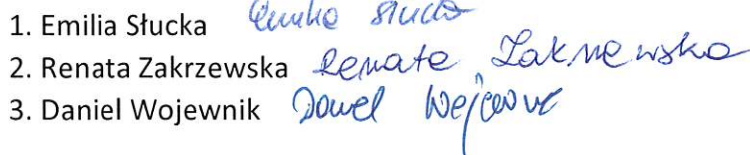 1. Emilia Słucka Emilia Słucka
2. Renata Zakrzewska Renata Zakrzewska
3. Daniel Wojewnik Daniel Wojewnik